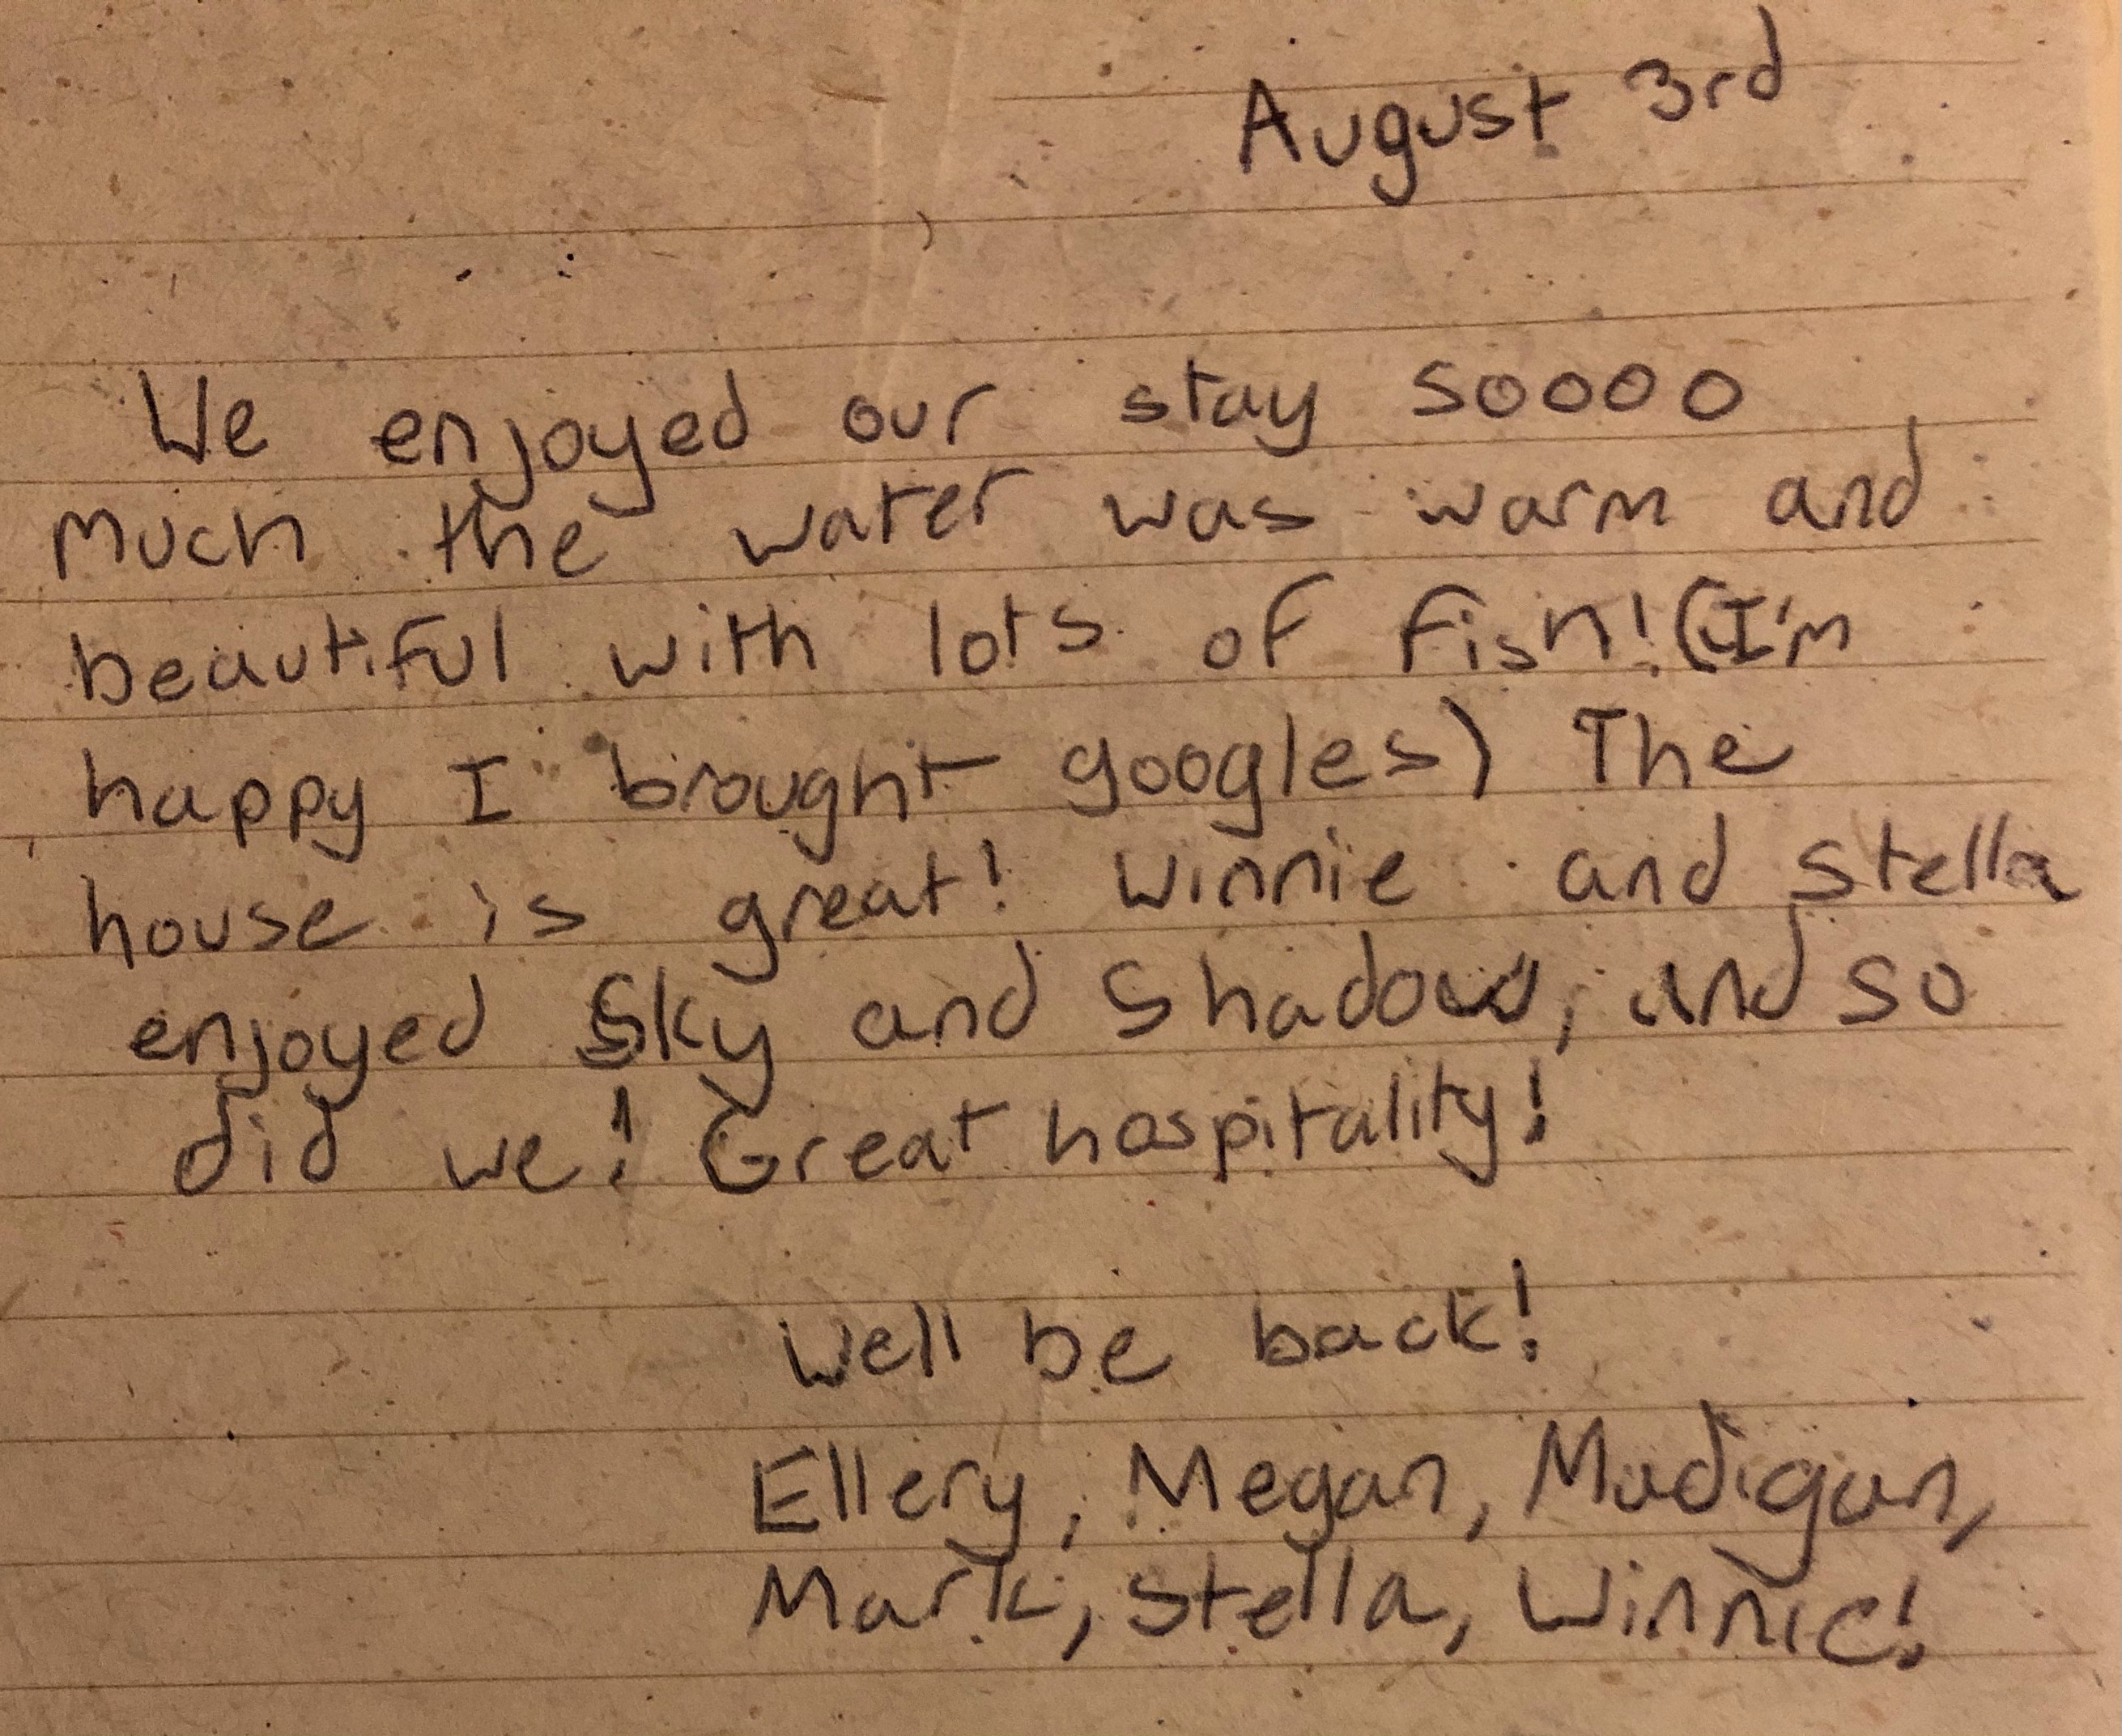 August 3rd
We enjoyed our stay soooo
much the water was warm and
beautiful with lots of fish! (I'm
happy I brought googles) The
house is great! Winnie and Stella
enjoyed Sky and Shadow, and so
did we! Great hospitality!
Well be back!
Ellery, Megan, Madigan,
Mark, Stella, Winnie!